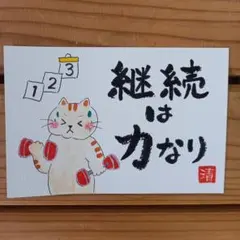 3
2
1
継続
は
力なり
清